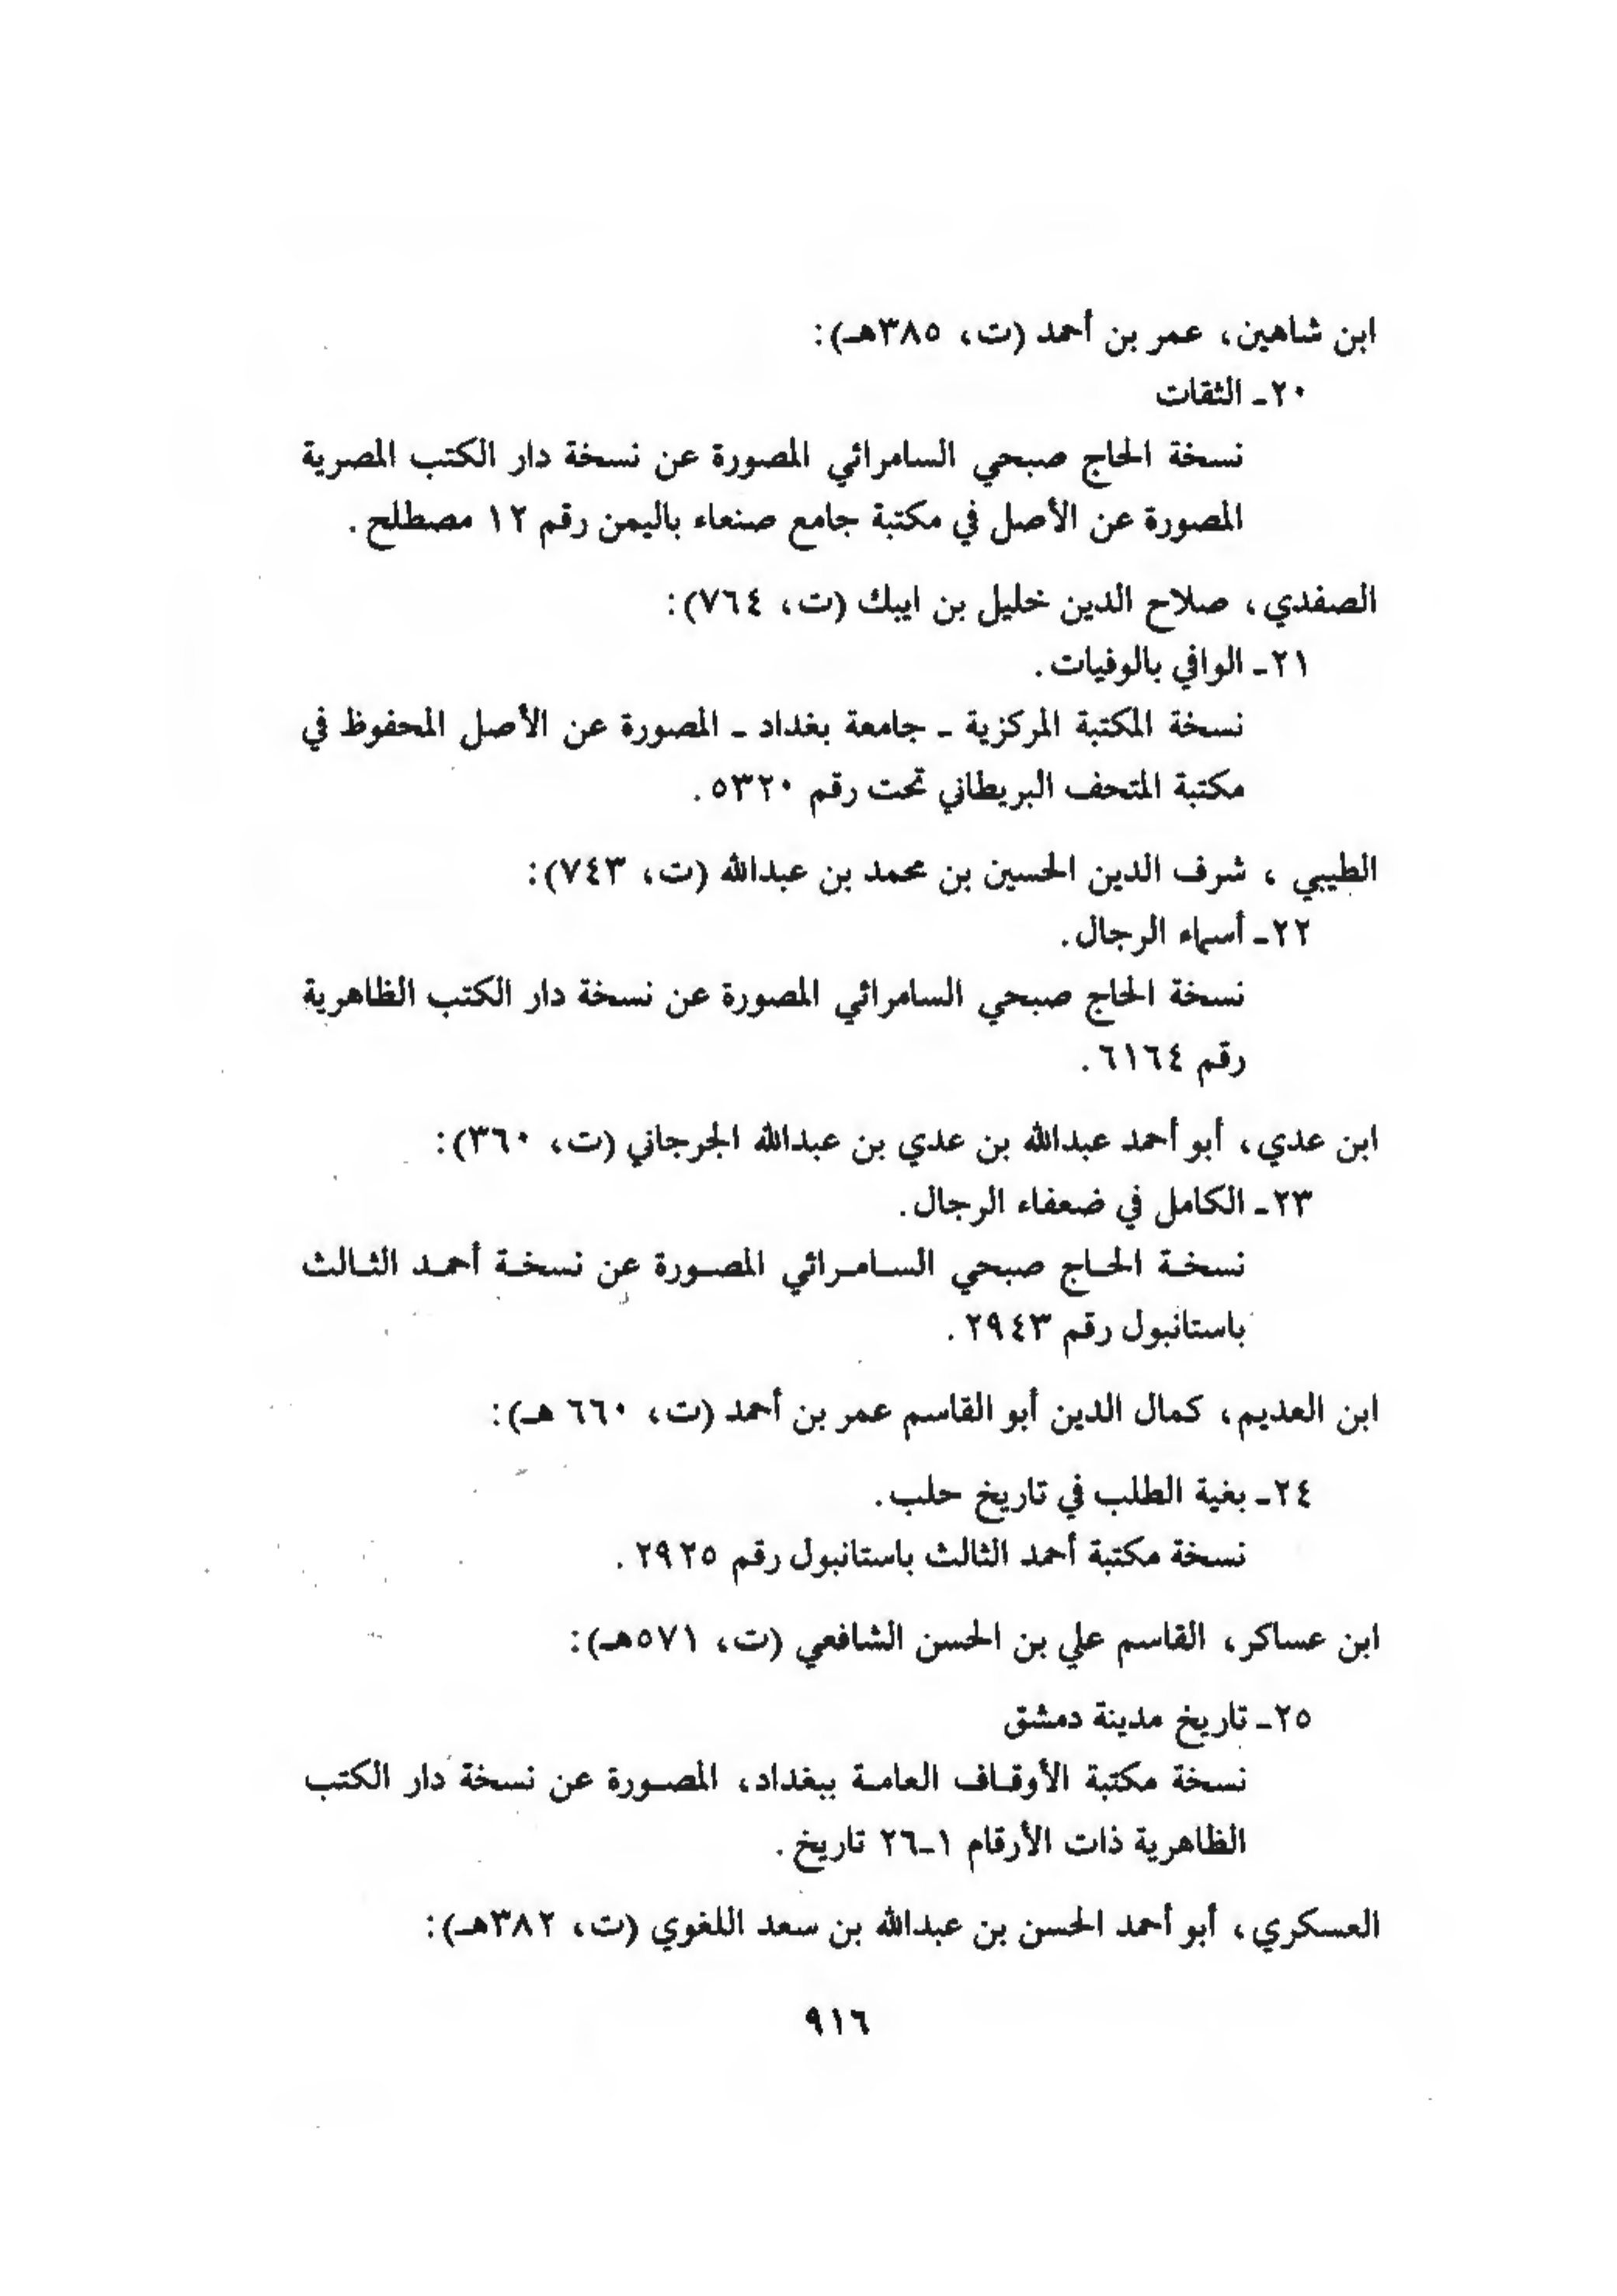 ابن شاهين، عمر بن أحمد (ت، ٣٨٥هـ):
٢٠ـ الثقات
نسخة الحاج صبحي السامرائي المصورة عن نسخة دار الكتب المصرية
المصورة عن الأصل في مكتبة جامع صنعاء باليمن رقم ١٢ مصطلح.
الصفدي، صلاح الدين خليل بن ايبك (ت، ٧٦٤):
٢١ـ الوافي بالوفيات.
نسخة المكتبة المركزية ـ جامعة بغداد ـ المصورة عن الأصل المحفوظ في
مكتبة المتحف البريطاني تحت رقم ٥٣٢٠.
الطيبي، شرف الدين الحسين بن محمد بن عبدالله (ت، ٧٤٣):
٢٢ـ أسماء الرجال.
نسخة الحاج صبحي السامرائي المصورة عن نسخة دار الكتب الظاهرية
رقم ٦١٦٤.
ابن عدي، أبو أحمد عبدالله بن عدي بن عبدالله الجرجاني (ت، ٣٦٠):
٢٣ـ الكامل في ضعفاء الرجال.
نسخـة الحـاج صبحي السـامـرائي المصـورة عن نسخـة أحمـد الثـالث
باستانبول رقم ٢٩٤٣.
ابن العديم، كمال الدين أبو القاسم عمر بن أحمد (ت، ٦٦٠ هـ):
٢٤ـ بغية الطلب في تاريخ حلب.
نسخة مكتبة أحمد الثالث باستانبول رقم ٢٩٢٥.
ابن عساكر، القاسم علي بن الحسن الشافعي (ت، ٥٧١هـ):
٢٥ـ تاريخ مدينة دمشق
نسخة مكتبة الأوقـاف العامـة ببغداد، المصـورة عن نسخة دار الكتب
الظاهرية ذات الأرقام ١ـ٢٦ تاريخ.
العسكري، أبو أحمد الحسن بن عبدالله بن سعد اللغوي (ت، ٣٨٢هـ):
٩١٦